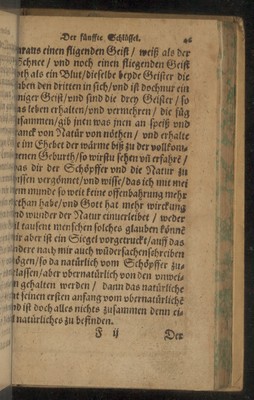 Der fünffte Schlüssel. 46
araus einen fligenden Geist / weiß als der
Schnee / vnd noch einen fliegenden Geist
oth als ein Blut / dieselbe beyde Geister die
aben den dritten in sich / vnd ist doch nur ein
niger Geist / vnd sind die drey Geister / so
as leben erhalten / vnd vermehren / die füg
zusammen / gib jnen was jnen an speiß vnd
tranck von Natur von nöthen / vnd erhalte
ie im Ehebet der wärme biß zu der vollkom-
nenen Geburth / so wirstu sehen vñ erfahrẽ /
was dir der Schöpffer vnd die Natur zu
issen vergönnet / vnd wisse / das ich mit mei
em munde so weit keine offenbahrung mehr
ethan habe / vnd Gott hat mehr wirckung
nd wunder der Natur einverleibet / weder
il tausent menschen solches glauben könnẽ
ir aber ist ein Siegel vorgetruckt / auff das
ndere nach mir auch wüdersachen schreiben
ögen / so da natürlich vom Schöpffer zu-
lassen / aber vbernatürlich von den vnwei-
n gehalten werden / dann das natürliche
t seinen ersten anfang vom vbernatürlichẽ
nd ist doch alles nichts zusammen denn ei-
natürliches zu befinden.
F ij Der